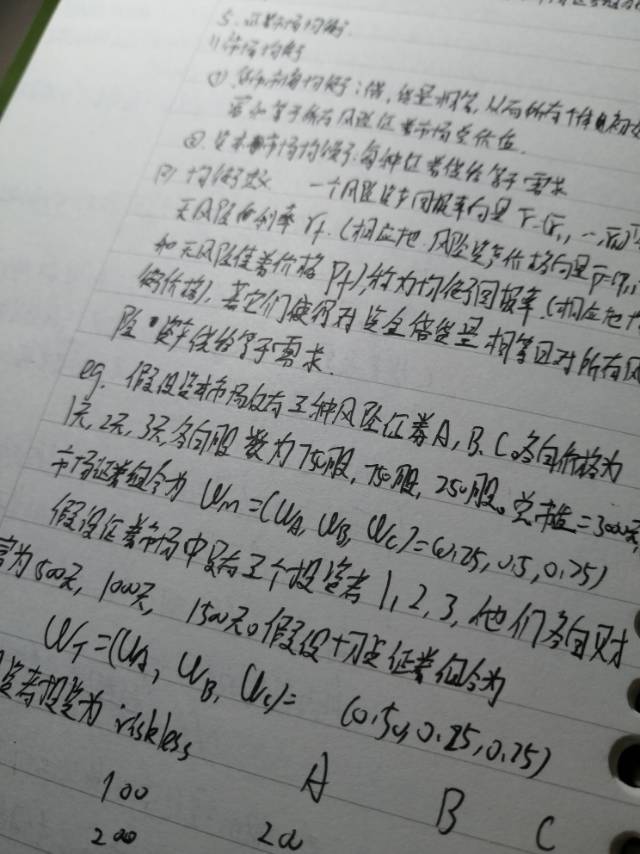 5. 证券市场均衡.
1) 市场均衡
① 货币市场均衡:借,贷量相等,从而所有个体
等于所有风险证券市场总价值.
② 资本市场均衡:每种证券供给等于需求
一个风险资产回报率向量
无风险利率 rf. (相应地.风险资产价格向量
和无风险债券价格 Pf),称为均衡回报率.(相应地
衡价格),若它们使得对资金借贷量相等且对所有风
险资产供给等于需求.
eg. 假设资本市场仅有三种风险证券A, B, C。各自价格为
1元, 2元, 3元,各自股数为750股, 750股, 250股。总市值=3000元,
市场证券组合为 Wm=(WA, WB, WC)=(0.25, 0.5, 0.25)
假设证券市场中只有三个投资者1, 2, 3,他们各自财
富为500元, 1000元, 1500元。假设切点证券组合为
WT=(WA, WB, WC)= (0.50, 0.25, 0.25)
资者投资为 riskless A B C
100
200 200